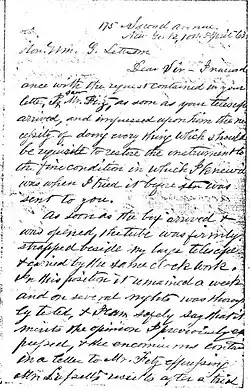 175 Second Avenue,
New York, 
Hon. Wm. G. Letcson
Dear Sir - In accord
ance with the request contained in your
letter, I saw Mr. Fitz, as soon as your telescope
arrived, and impressed upon him the ne
cessity of doing every thing which should
be requisite to restore the instrument to
the fine condition in which I knew it
was when I tried it before it was
sent to you.
As soon as the box arrived &
was opened, the tube was firmly
strapped beside my large telescope
& carried by the same clock work.
In this position it remained a week
and on several nights was thorough
ly tested, & I can safely say that it
merits the opinion I previously ex
pressed, & the encomiums contained
in a letter to Mr. Fitz, 
Mr. results after a trial